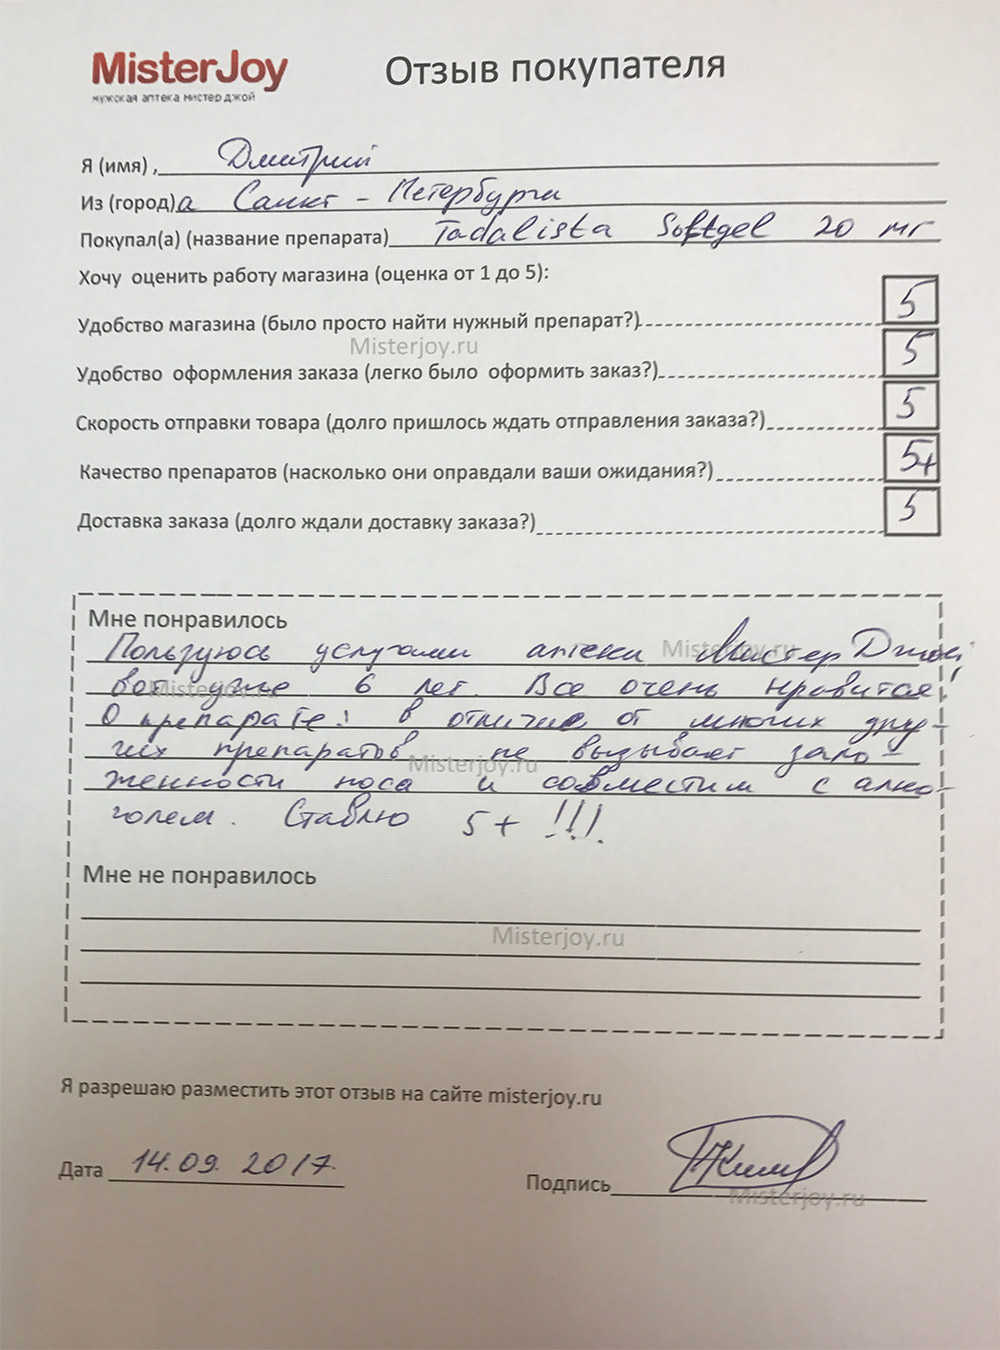 MisterJoy
мужская аптека мистер джой
Отзыв покупателя
Я (имя) , Дмитрий
Из (город)а Санкт - Петербурга
Покупал(а) (название препарата) Tadalista Softgel 20 мг
Хочу оценить работу магазина (оценка от 1 до 5):
Удобство магазина (было просто найти нужный препарат?) 5
Misterjoy.ru
Удобство оформления заказа (легко было оформить заказ?) 5
Скорость отправки товара (долго пришлось ждать отправления заказа?) 5
Качество препаратов (насколько они оправдали ваши ожидания?) 5+
Доставка заказа (долго ждали доставку заказа?) 5
Мне понравилось
Пользуюсь услугами аптеки Мистер Джой
Misterjoy.ru
вот уже 6 лет. Все очень нравится!
Misterjoy.ru
О препарате: в отличие от многих дру-
гих препаратов не вызывает зало-
Misterjoy.ru
женности носа и совместим с алко-
голем. Ставлю 5+ !!!
Мне не понравилось
Misterjoy.ru
Я разрешаю разместить этот отзыв на сайте misterjoy.ru
Дата 14.09.2017.
Подпись
Misterjoy.ru